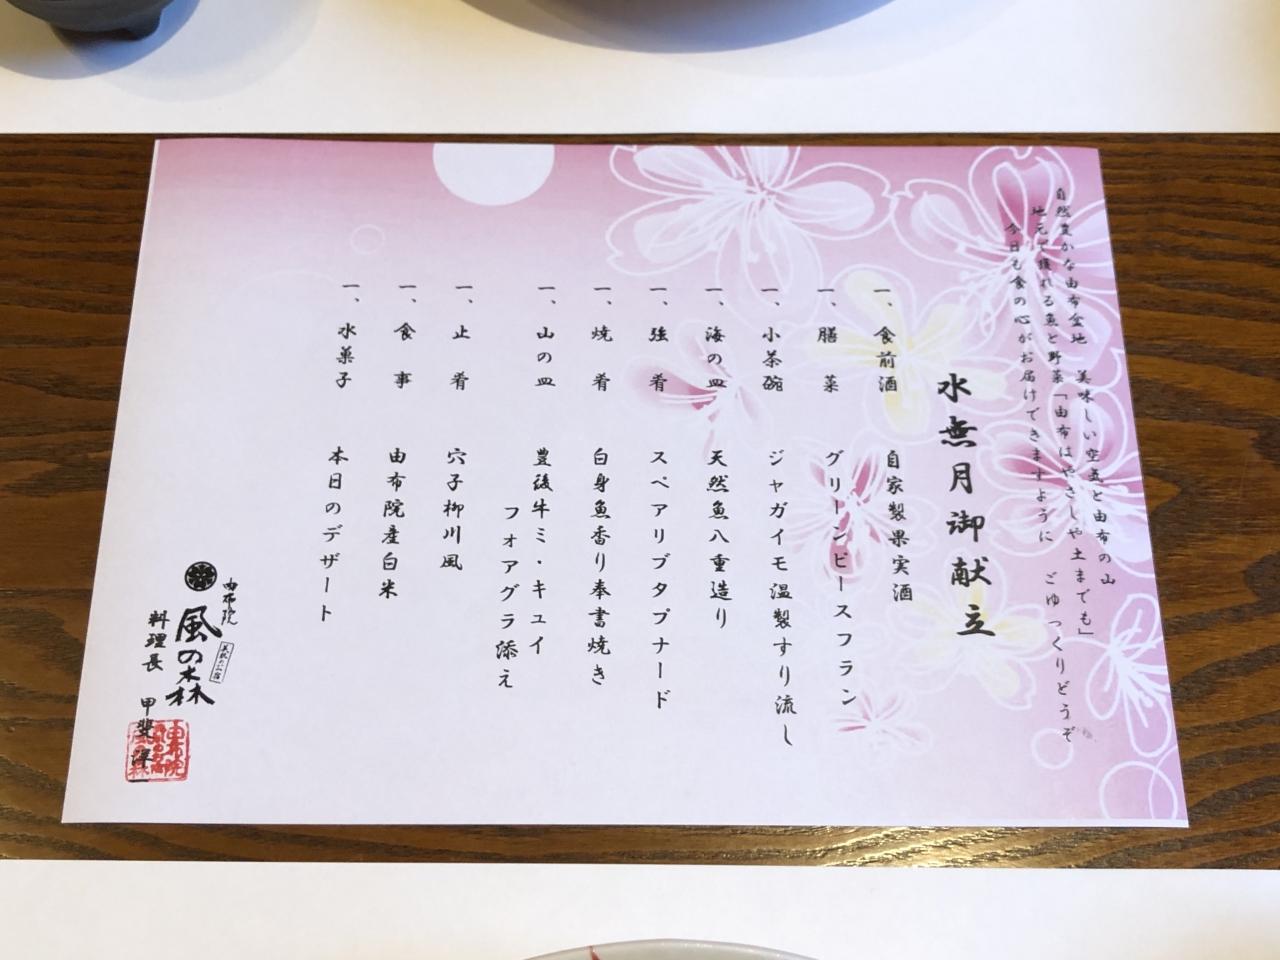 自然豊かな由布盆地 美味しい空気と由布の山
地元で獲れる魚と野菜「由布はやさしや土までも」
今日も食の心がお届けできますように ごゆっくりどうぞ
水無月御献立
一、食前酒 自家製果実酒
一、膳菜 グリーンピースフラン
一、小茶碗 ジャガイモ温製すり流し
一、海の皿 天然魚八重造り
一、強肴 スペアリブタプナード
一、焼肴 白身魚香り奉書焼き
一、山の皿 豊後牛ミ・キュイ
フォアグラ添え
一、止肴 穴子柳川風
一、食事 由布院産白米
一、水菓子 本日のデザート
由布院
風の森
料理長 甲斐洋一